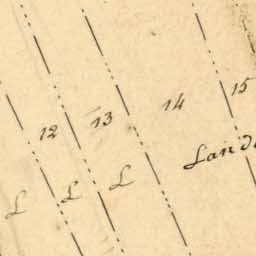 12 13 14 15
L L L